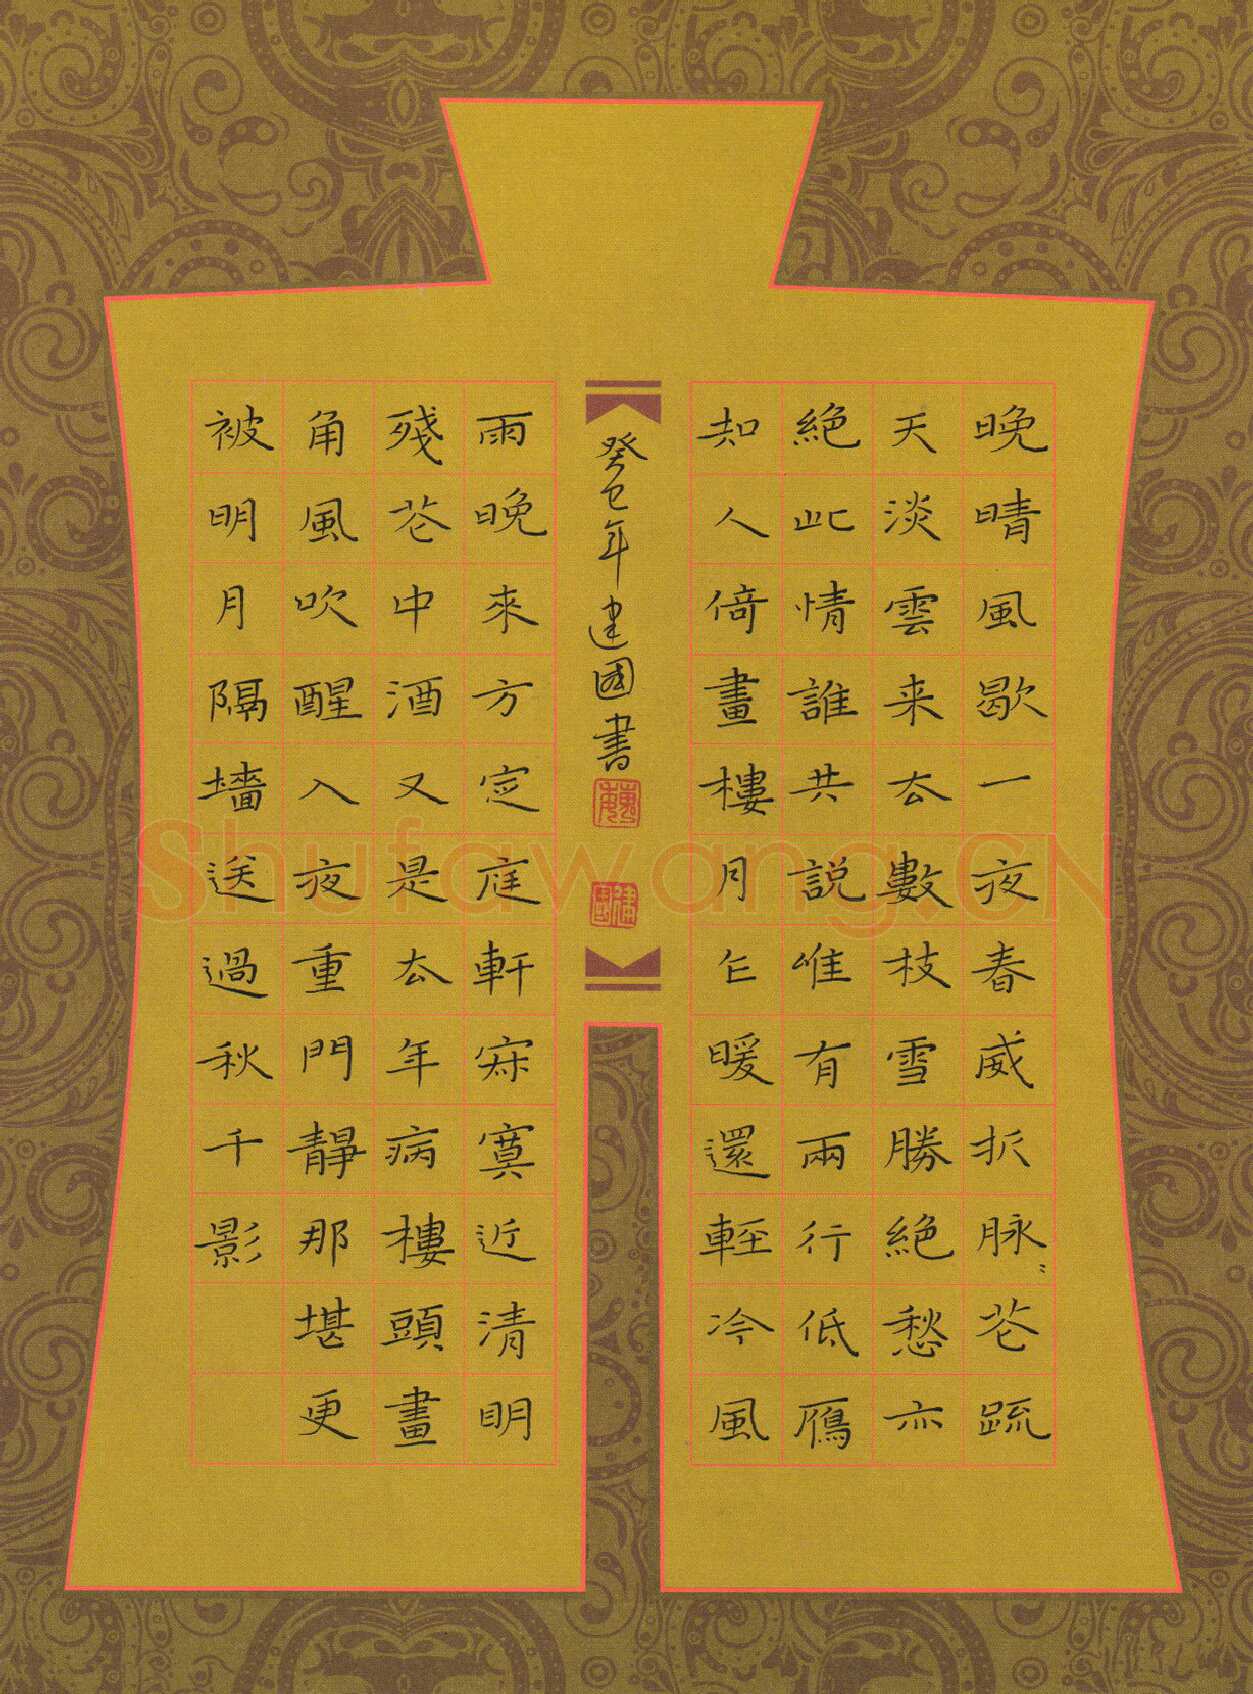 晚晴風歇一夜春威折脉〻花疏
天淡雲来去數枝雪勝絕愁亦
絕此情誰共説唯有兩行低鴈
知人倚畫樓月乍暖還輕冷風
雨晚來方定庭軒寂寞近清明
殘花中酒又是去年病樓頭畫
角風吹醒入夜重門靜那堪更
被明月隔墻送過秋千影
癸巳年建國書
魏
建國
Shufawang.CN